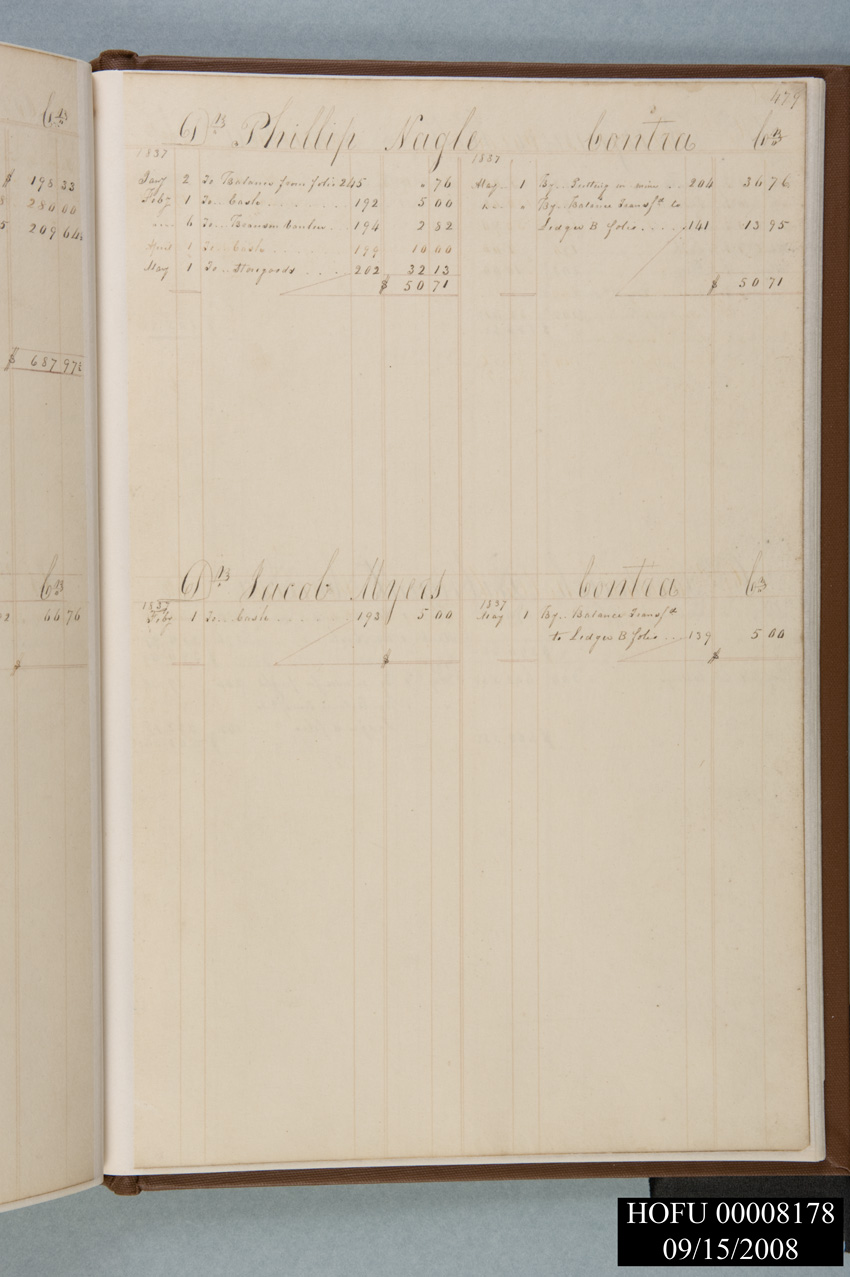 Cr
$ 198 33
280 00
209 64½
$ 687 97½
Cr
66 76
$
479
Dr Phillip Nagle Contra Cr
1837 1837
Jany 2 To Balance from folio 245 " 76 May 1 By .. Putting in mine .. 204 36 76
Feby 1 To .. Cash 192 5 00 " By .. Balance Transfd to
" 6 To .. 194 2 82 Ledger B folio 141 13 95
April 1 To .. Cash 199 10 00
May 1 To .. Storegoods 202 32 13
$ 50 71 $ 50 71
Dr Jacob Myers Contra Cr
1837 1837
Feby 1 To .. Cash 193 5 00 May 1 By .. Balance Transfd
to Ledger B folio .. 139 5 00
$ $
HOFU 00008178
09/15/2008